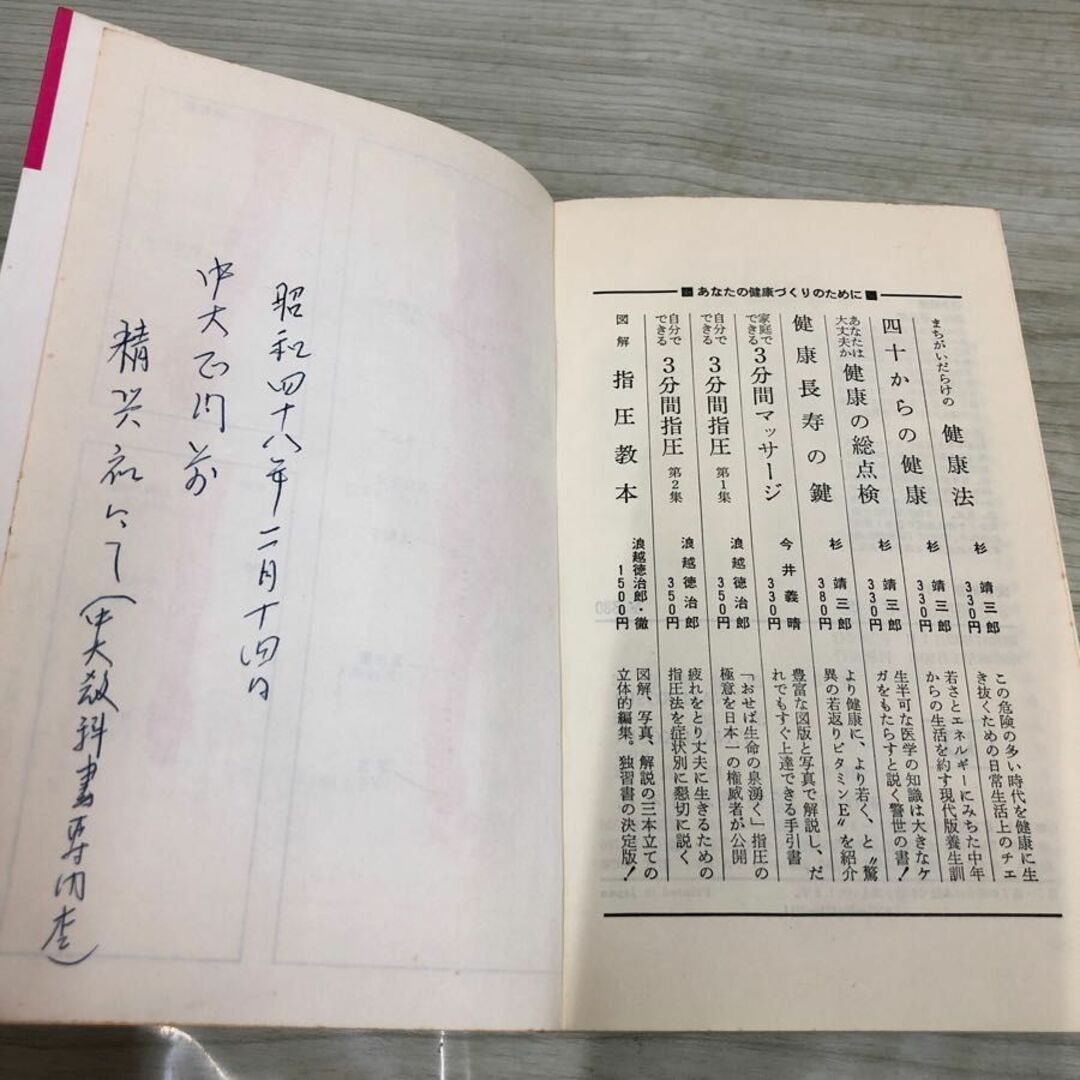 あなたの健康づくりのために
まちがいだらけの 健康法 杉 靖三郎 330円
この危険の多い時代を健康に生
き抜くための日常生活上のチェ
四十からの健康 杉 靖三郎 330円
若さとエネルギーにみちた中年
からの生活を約す現代版養生訓
あなたは大丈夫か 健康の総点検 杉 靖三郎 330円
生半可な医学の知識は大きなケ
ガをもたらすと説く警世の書!
健康長寿の鍵 杉 靖三郎 380円
より健康に、より若く、と〝驚
異の若返りビタミンE〟を紹介
家庭でできる 3分間マッサージ 今井義晴 330円
豊富な図版と写真で解説し、だ
れでもすぐ上達できる手引書
自分でできる 3分間指圧 第1集 浪越徳治郎 350円
「おせば生命の泉湧く」指圧の
極意を日本一の権威者が公開
自分でできる 3分間指圧 第2集 浪越徳治郎 350円
疲れをとり丈夫に生きるための
指圧法を症状別に懇切に説く
図解 指圧教本 浪越徳治郎・徹 1500円
図解、写真、解説の三本立ての
立体的編集。独習書の決定版!
昭和四十八年二月十四日
中大正門前
にて(中大教科書専門店)